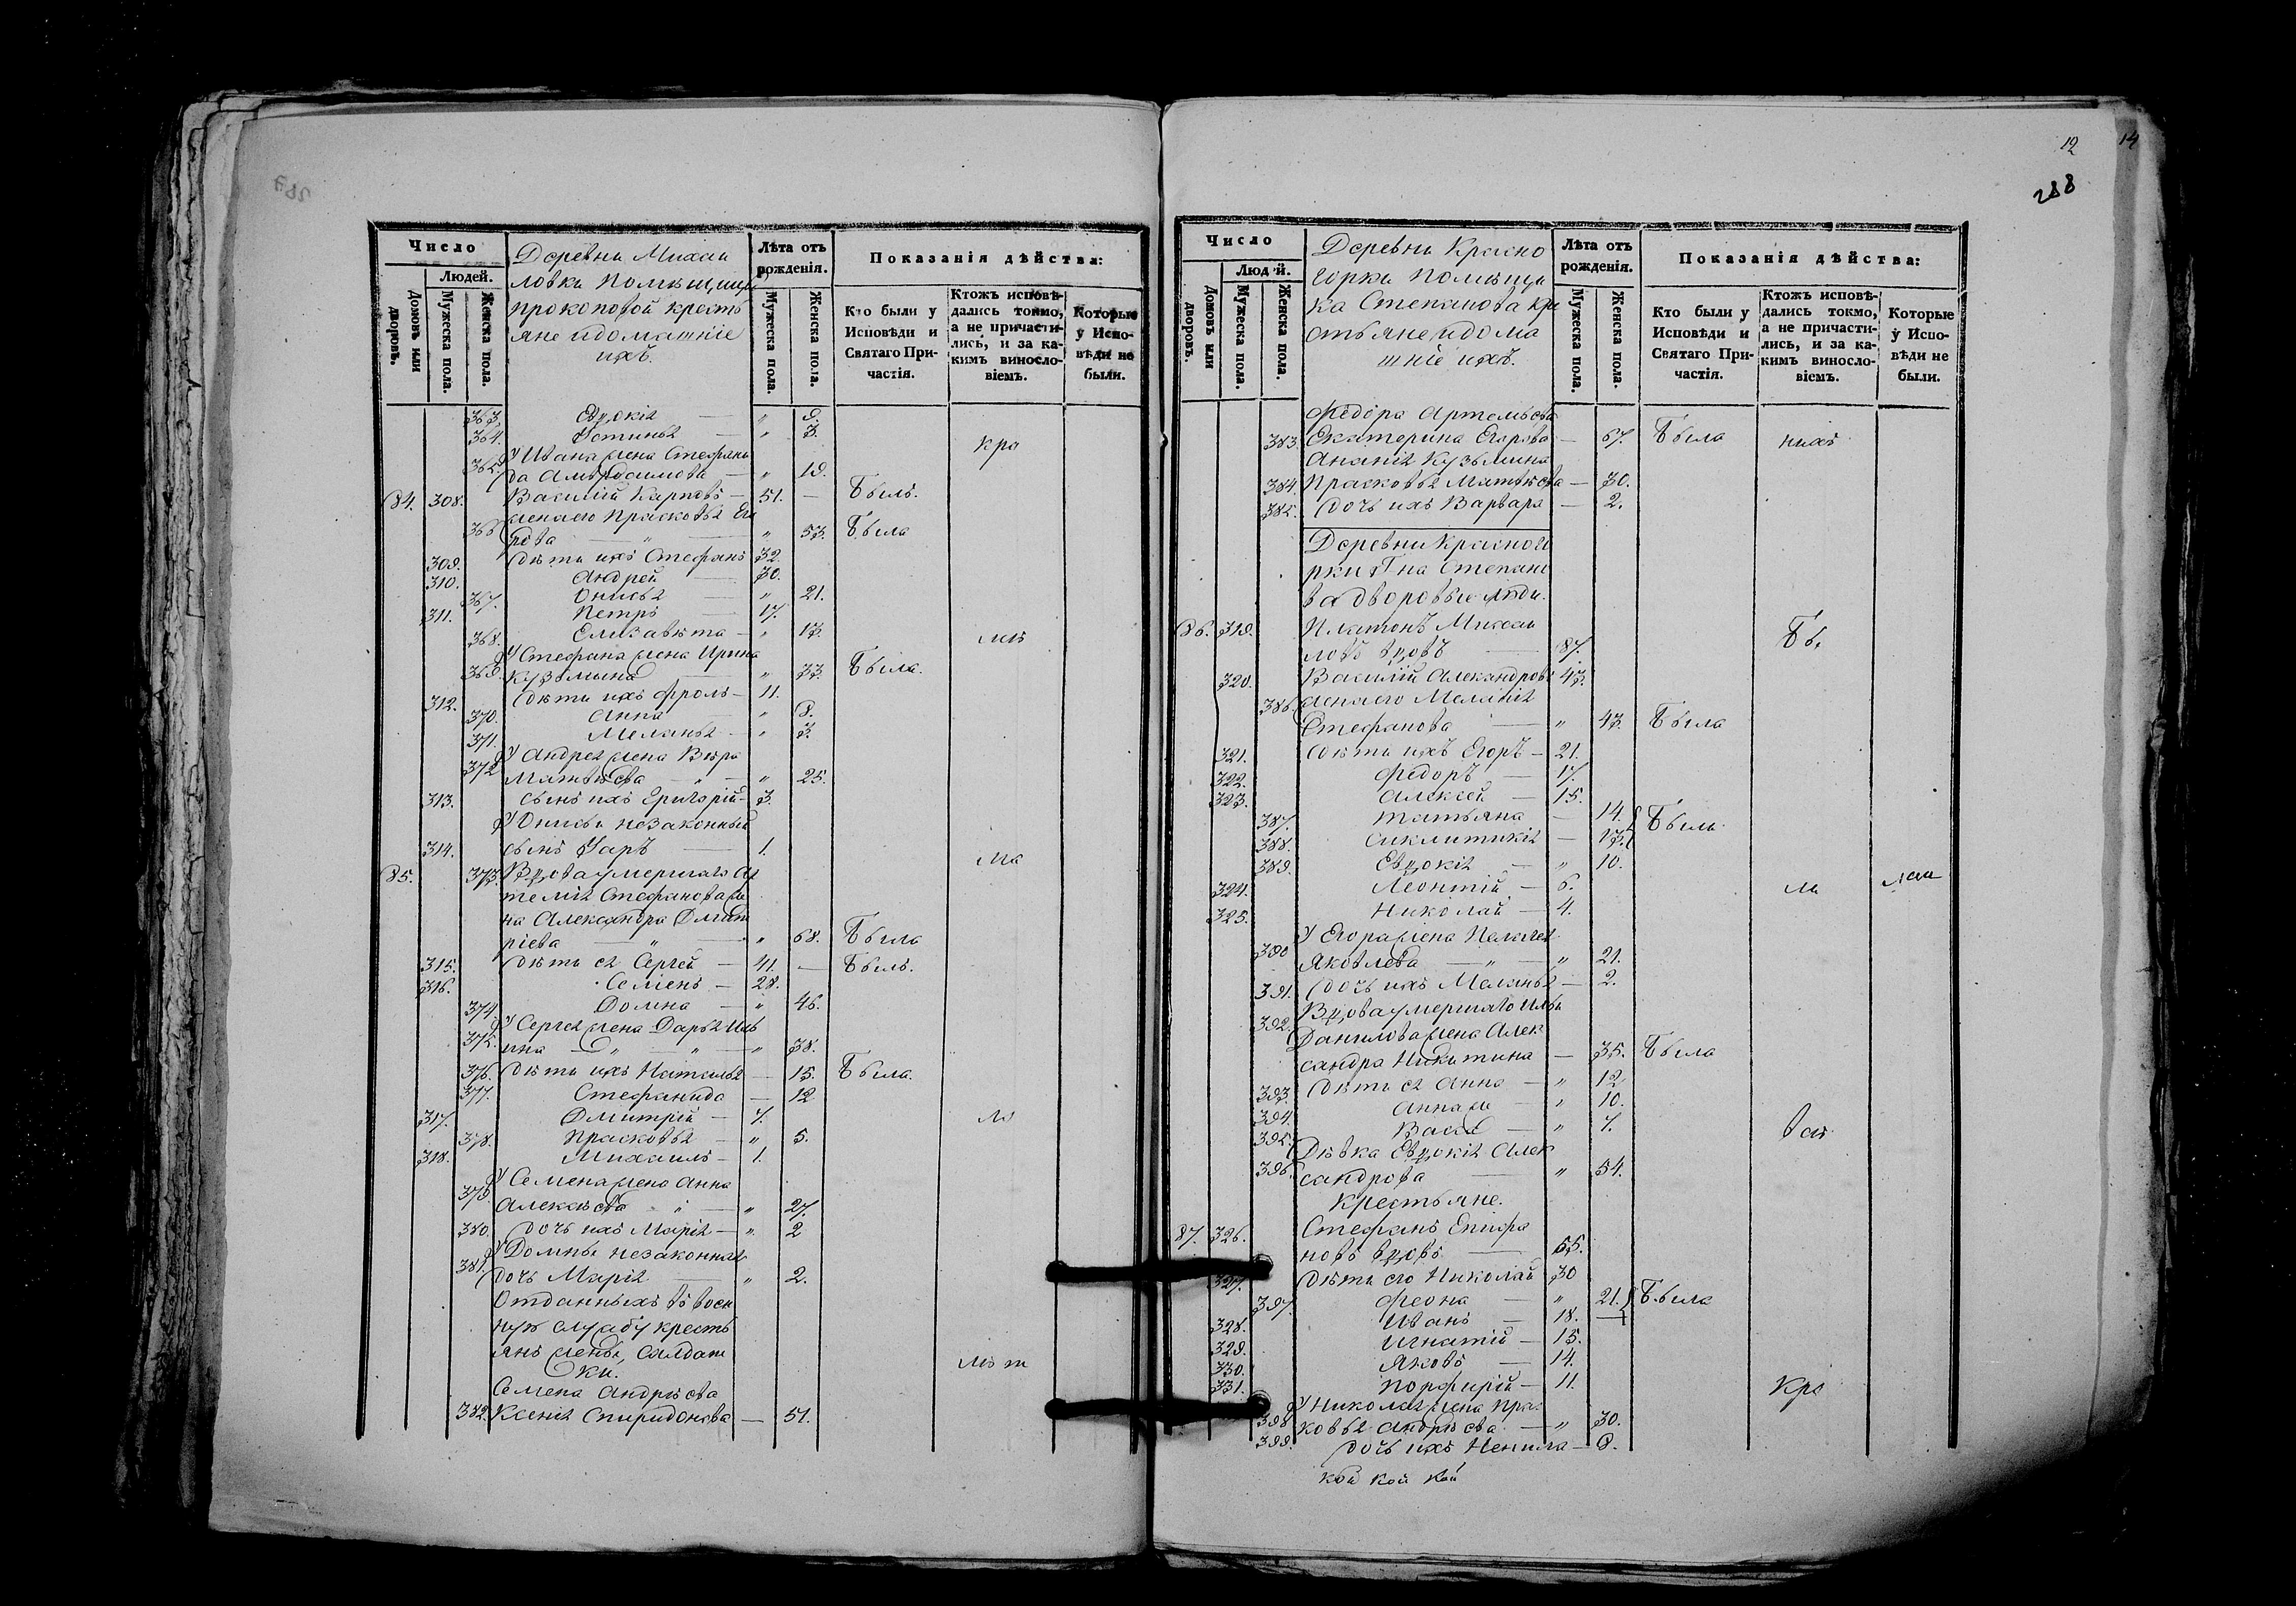 12 14
288
Число
Людей.
Домовъ или дворовъ.
Мужеска пола.
Женска пола.
Деревни Михаи
ловки Помѣщицы
Прокоповой кресть
яне и домашніе
ихъ.
Лѣта отъ рожденія.
Мужеска пола.
Женска пола.
Показанія дѣйства:
Кто были у Исповѣди и Святаго Причастія.
Ктожъ исповѣдались токмо, а не причастились, и за какимъ винословіемъ.
Которые у Исповѣди не были.
363. Евдокія — " 9.
364. Устинья — " 3.
У Ивана жена Стефани
365. да — " 19.
84. 308. Василій Карповъ — 51. — Былъ.
жена его Прасковья Его
366 рова — " — " 53. Была
309. Дѣти ихъ Стефанъ 32.
310. Андрей — 30.
367. Онисья — " 21.
311. Петръ — 17.
368. Елизавета — " 13.
У Стефана жена Ирина
369. Кузьмина — " 33. Была.
312. Дѣти ихъ Фролъ — 11.
370. Анна — " 8.
371. Меланья — " 3.
У Андрея жена Вѣра
372 Матвѣева — " — " 25.
313. Сынъ ихъ Григорій — 3.
У Онисьи незаконный
314. сынъ Уаръ — 1.
85. 373. Вдова умершаго Ар
темія Стефанова же
на Александра Дмит
ріева — " — " 68. Была
315. Дѣти ея Сергей — 41. — Былъ.
316. Семенъ — 28.
374 Домна — " 46.
У Сергея жена Дарья Иль
375. ина — " — " — " 38.
376. Дѣти ихъ Наталья — 15. Была.
377. Стефанида — 12
317. Дмитрій — 7.
378. Прасковья — " 5.
318. Михаилъ — 1.
У Семена жена Анна
379. Алексѣева — " — " 27.
380. дочь ихъ Марія — " 2
У Домны незаконная
381. дочь Марія — " 2.
Отданныхъ въ воен
ную службу кресть
янъ жены, салдат
ки.
Семена Андрѣева
382. Ксенія Спиридонова — 51.
Число
Людей.
Домовъ или дворовъ.
Мужеска пола.
Женска пола.
Деревни Красно
горки Помѣщи
ка Степанова кре
стьяне и дома
шніе ихъ.
Лѣта отъ рожденія.
Мужеска пола.
Женска пола.
Показанія дѣйства:
Кто были у Исповѣди и Святаго Причастія.
Ктожъ исповѣдались токмо, а не причастились, и за какимъ винословіемъ.
Которые у Исповѣди не были.
Федора Артемьева
383. Екатерина Егорова — 67. Была
Ананія Кузьмина
384. Прасковья Матвѣева — 30.
385. дочь ихъ Варвара — 2.
Деревни Красного
рки Гна Степано
ва дворовые люди.
86. 319. Платонъ Михаи
ловъ вдовъ — 87.
320. Василій Александровъ 43.
386. жена его Меланія
Стефанова — " 43. Была
321. Дѣти ихъ Егоръ — 21.
322. Федоръ — 17.
323. Алексей — 15.
387. Татьяна — 14. Были
388. Синклитикія — 13.
389. Евдокія — " 10.
324. Леонтій — 6.
325. Николай — 4.
У Егора жена Пелагея
390 Яковлева — " — " 21.
391. дочь ихъ Меланья — 2.
392. Вдова умершаго Ильи
Данилова жена Алек
сандра Никитина — 35. Была
393. Дѣти ея Анна — " 12.
394. Анна же — " 10.
395. Васса — " 7.
Дѣвка Евдокія Алек
396. сандрова — " 54.
Крестьяне.
87. 326. Стефанъ Епифа
новъ вдовъ — 55.
327. Дѣти его Николай 30
397. Феона — " 21. Была
328. Иванъ — 18.
329. Игнатій — 15.
330. Яковъ — 14.
331. Порфирій — 11.
У Николая жена Пра
398 сковья Андрѣева — " 30.
399. дочь ихъ Ненила — 9.
кой кой кой